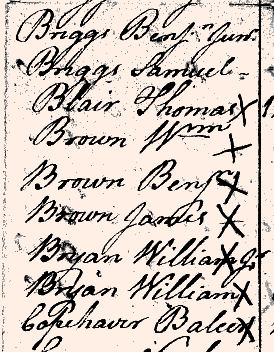 Briggs Benj.n Junr.
Briggs Samuel
Blair Thomas X
Brown Wm X
Brown Benj X
Brown James X
Bryan William Jr X
Bryan William X
Copehaver X